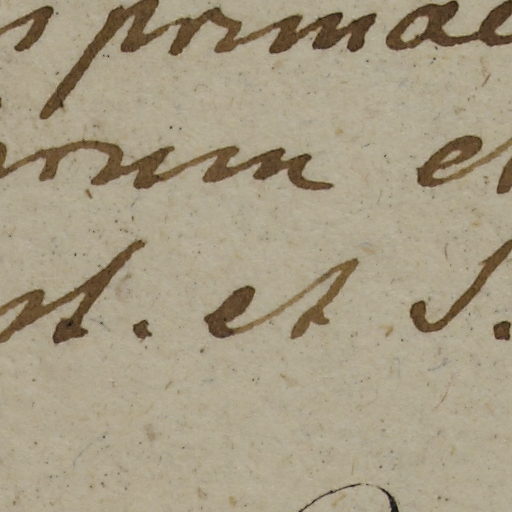 primae
orum et
et S.